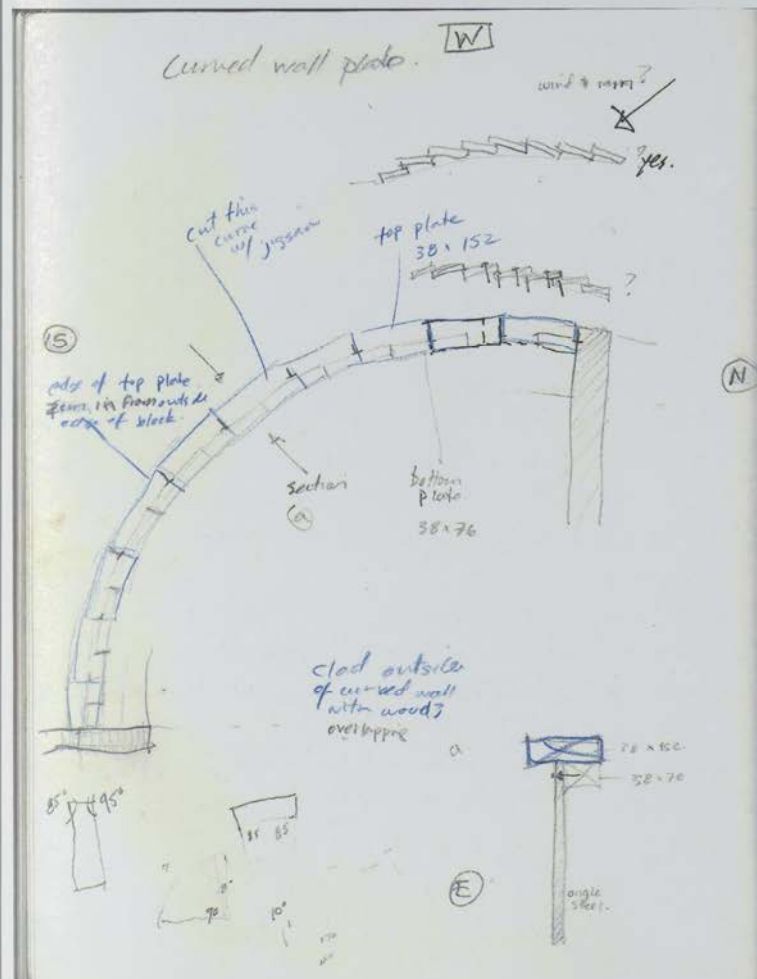 W
Curved wall plate.
wind &
?
? yes.
cut this
curve
w/ jigsaw
top plate
38 x 152
?
S
N
edge of top plate
in from outside
edge of block.
section
a
bottom
plate
38 x 76
clad outside
of curved wall
with wood?
overlapping
a
38 x 152
38 x 76
85° 95°
85 85
E
angle
steel.
90
10°